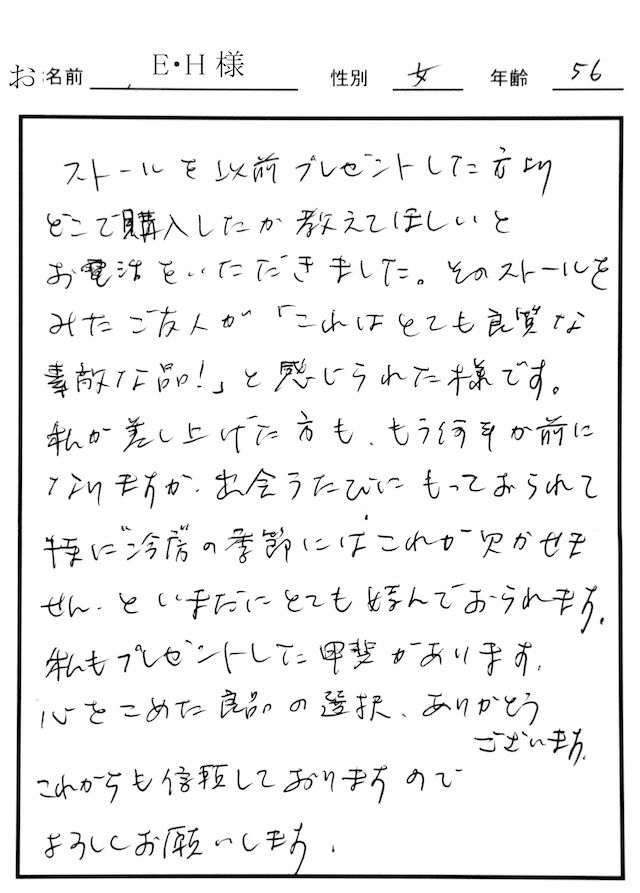 お名前 E・H 様 性別 女 年齢 56
ストールを以前プレゼントした方より
どこで購入したか教えてほしいと
お電話をいただきました。そのストールを
みたご友人が「これはとても良質な
素敵な品!」と感じられた様です。
私が差し上げた方も、もう何年か前に
なりますが、出会うたびにもっておられて
特に“冷房の季節にはこれが欠かせま
せん、といまだにとても好んでおられます。
私もプレゼントした甲斐があります。
心をこめた良品の選択、ありがとう
ございます。
これからも信頼しておりますので
よろしくお願いします。